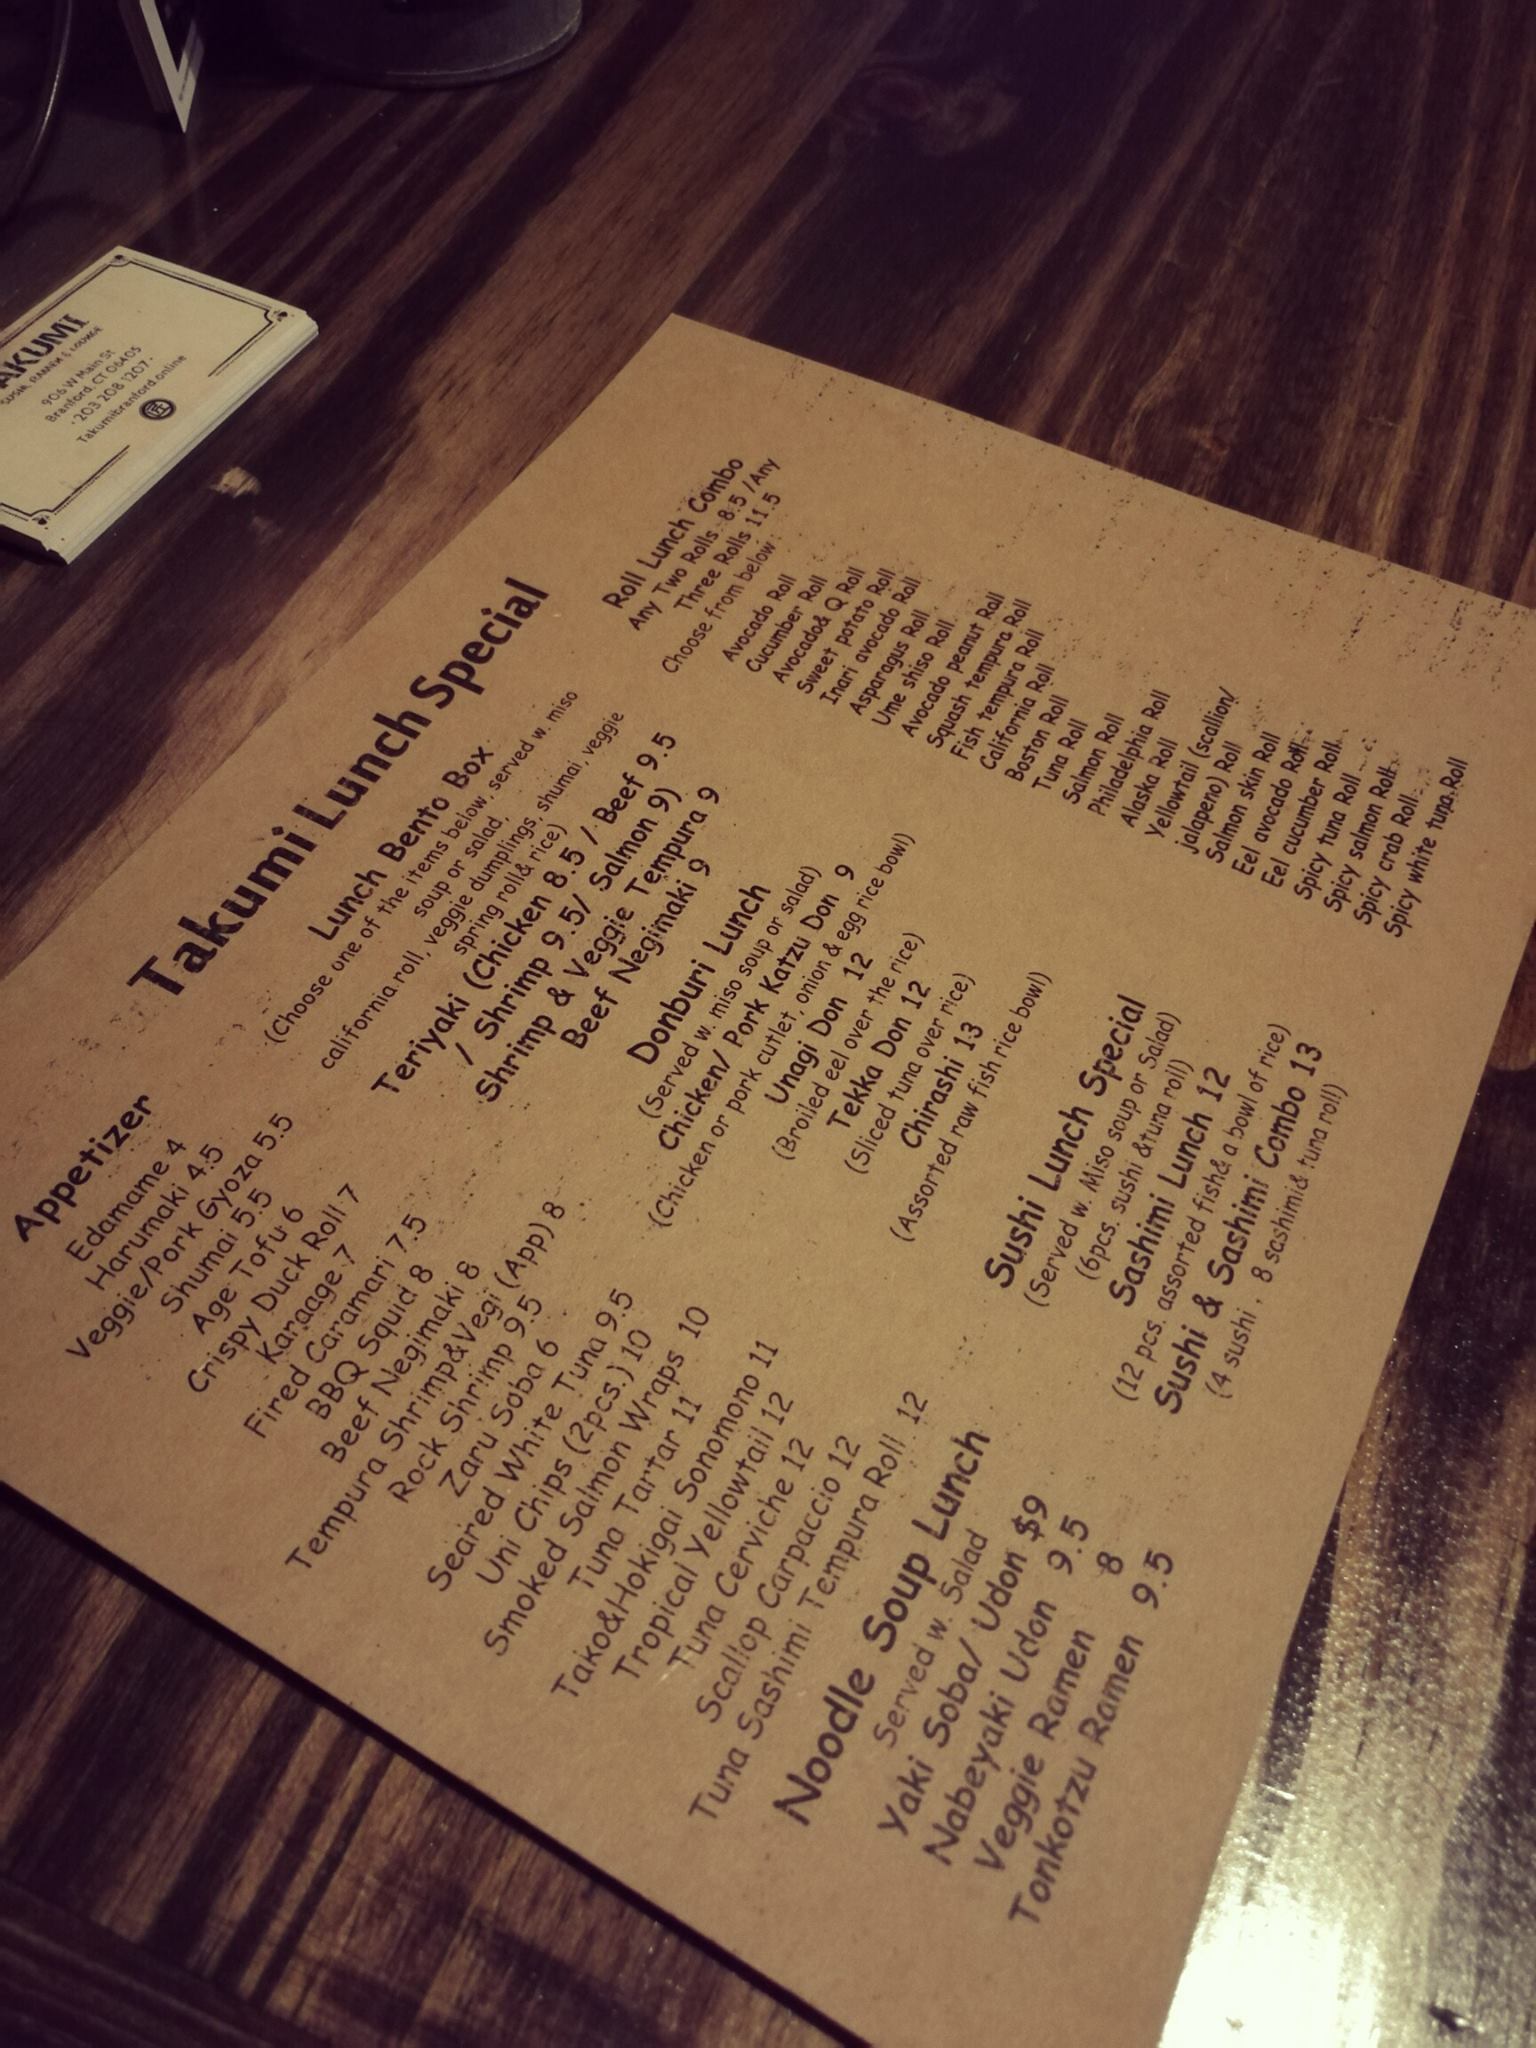 AKUMI
SUSHI, RAMEN & LOUNGE
906 W Main St
Branford, CT 06405
· 203 208 1207 ·
Takumibranford.online
匠
Takumi Lunch Special
Appetizer
Edamame 4
Harumaki 4.5
Veggie/Pork Gyoza 5.5
Shumai 5.5
Age Tofu 6
Crispy Duck Roll 7
Karaage 7
Fired Caramari 7.5
BBQ Squid 8
Beef Negimaki 8
Tempura Shrimp&Vegi (App) 8
Rock Shrimp 9.5
Zaru Soba 6
Seared White Tuna 9.5
Uni Chips (2pcs.) 10
Smoked Salmon Wraps 10
Tuna Tartar 11
Tako&Hokigai Sonomono 11
Tropical Yellowtail 12
Tuna Cerviche 12
Scallop Carpaccio 12
Tuna Sashimi Tempura Roll 12
Noodle Soup Lunch
Served w. Salad
Yaki Soba/ Udon $9
Nabeyaki Udon 9.5
Veggie Ramen 8
Tonkotzu Ramen 9.5
Lunch Bento Box
(Choose one of the items below, served w. miso
soup or salad,
california roll, veggie dumplings, shumai, veggie
spring roll& rice)
Teriyaki (Chicken 8.5 / Beef 9.5
/ Shrimp 9.5/ Salmon 9)
Shrimp & Veggie Tempura 9
Beef Neginaki 9
Donburi Lunch
(Served w. miso soup or salad)
Chicken/ Pork Katzu Don 9
(Chicken or pork cutlet, onion & egg rice bowl)
Unagi Don 12
(Broiled eel over the rice)
Tekka Don 12
(Sliced tuna over rice)
Chirashi 13
(Assorted raw fish rice bowl)
Sushi Lunch Special
(Served w. Miso soup or Salad)
(6pcs. sushi &tuna roll)
Sashimi Lunch 12
(12 pcs. assorted fish& a bowl of rice)
Sushi & Sashimi Combo 13
(4 sushi , 8 sashimi& tuna roll)
Roll Lunch Combo
Any Two Rolls 8.5 /Any
Three Rolls 11.5
Choose from below:
Avocado Roll
Cucumber Roll
Avocado& Q Roll
Sweet potato Roll
Inari avocado Roll
Asparagus Roll
Ume shiso Roll
Avocado peanut Roll
Squash tempura Roll
Fish tempura Roll
California Roll
Boston Roll
Tuna Roll
Salmon Roll
Philadelphia Roll
Alaska Roll
Yellowtail (scallion/
jalapeno) Roll
Salmon skin Roll
Eel avocado Roll
Eel cucumber Roll
Spicy tuna Roll
Spicy salmon Roll
Spicy crab Roll
Spicy white tuna Roll